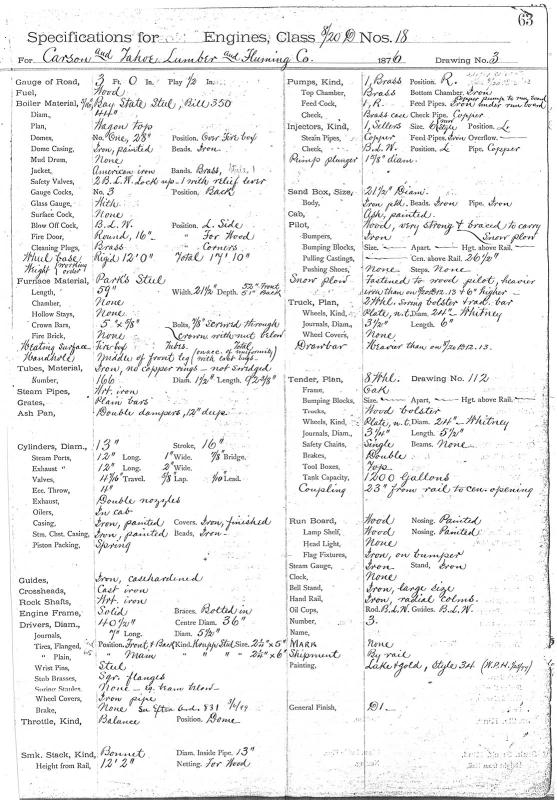 63
Specifications for Engines, Class 8/20 D Nos. 18
For Carson and Tahoe Lumber and Fluming Co. 1876 Drawing No. 3
Gauge of Road, 3 Ft. 0 In. Play 1/2 In.
Fuel, Wood
Boiler Material, Bay State Steel, Bill 350
Diam., 44"
Plan, Wagon top
Domes, One, 28" Position. Over Fire box
Dome Casing, Iron, painted Beads. Iron
Mud Drum, None
Jacket, American iron Bands. Brass,
Safety Valves, 2 B.L.W. Lock up - 1 with relief lever
Gauge Cocks, No. 3 Position, Back
Glass Gauge, With
Surface Cock, None
Blow Off Cock, B.L.W. Position. L. Side
Fire Door, Round, 16" " For Wood
Cleaning Plugs, Brass " Corners
Wheel base Rigid 12'0" Total 17'10"
Weight (working order)
Furnace Material, Park's Steel
Length, 59" Width. 21 1/2 Depth. 52" Front 51" Back
Chamber, None
Hollow Stays, None
Crown Bars, 5" x 5/8" Bolts, 7/8 Screwed through
Fire Brick, None crown with nut below
Heating Surface Fire box Tubes. Total
Handhole, Middle of front leg
Tubes, Material, Iron, no copper rings - not swedged
Number, 166 Diam. 1 1/2" Length. 9'2 3/8"
Steam Pipes, Wrt. iron
Grates, Plain bars
Ash Pan, Double dampers, 12" deep.
Cylinders, Diam., 13" Stroke, 16"
Steam Ports, 12" Long. 1" Wide. 7/8" Bridge.
Exhaust " 12" Long. 2" Wide.
Valves, 4 7/16" Travel. 5/8" Lap. 1/40" Lead.
Ecc. Throw, 4"
Exhaust, Double nozzles
Oilers, In cab
Casing, Iron, painted Covers. Iron, finished
Stm. Chst. Casing, Iron, painted Beads, Iron
Piston Packing, Spring
Guides, Iron, casehardened
Crossheads, Cast iron
Rock Shafts, Wrt. iron
Engine Frame, Solid Braces. Bolted in
Drivers, Diam., 40 1/2" Centre Diam. 36"
Journals, 7" Long. Diam. 5 1/2"
Tires, Flanged, Position. Front & Back Kind. Krupp Steel Size. 2 1/4" x 5"
" Plain, " Main " " " " 2 1/4" x 6"
Wrist Pins, Steel
Stub Brasses, Sqr. flanges
Swing Stardes, None
Wheel Covers, Iron pipe
Brake, None
Throttle, Kind, Balance Position. Dome
Smk. Stack, Kind, Bonnet Diam. Inside Pipe. 13"
Height from Rail, 12'2" Netting. For Wood
Pumps, Kind, 1, Brass Position. R.
Top Chamber, Brass Bottom Chamber. Iron
Feed Cock, 1, R. Feed Pipes. Copper pump to run board Iron under run board
Check, Brass case Check Pipe. Copper
Injectors, Kind, 1, Sellers Size. Position. L.
Steam Pipes, Copper Feed Pipes, Iron Overflow.
Check, B.L.W. Position, L Pipe, Copper
Pump plunger 1 7/8" diam.
Sand Box, Size, 21 1/2" Diam.
Body, Iron ptd. Beads. Iron Pipe. Iron
Cab, Ash, painted.
Pilot, Wood, very strong & braced to carry
Bumpers, Iron Snow plow
Bumping Blocks, Size. Apart. Hgt. above Rail.
Pulling Castings, Cen. above Rail. 26 1/2"
Pushing Shoes, None Steps. None
Snow plow fastened to wood pilot, heavier
iron than on 8/20 D 12.13 & 6" higher
Truck, Plan, 2 Whl. Swing bolster rad. bar
Wheels, Kind, Plate, n.c. Diam. 24" - Whitney
Journals, Diam., 3 1/2" Length. 6"
Wheel Covers, None
Drawbar Heavier than on 8/20 D 12.13.
Tender, Plan, 8 Whl. Drawing No. 112
Frame, Oak
Bumping Blocks, Size. Apart. Hgt. above Rail.
Trucks, Wood bolster
Wheels, Kind, Plate, n.c. Diam. 24" - Whitney
Journals, Diam., 3 1/4" Length. 5 1/2"
Safety Chains, Single Beams. None
Brakes, Double
Tool Boxes, Top
Tank Capacity, 1200 Gallons
Coupling 23" from rail to cen. opening
Run Board, Wood Nosing. Painted
Lamp Shelf, Wood Nosing. Painted
Head Light, None
Flag Fixtures, Iron, on bumper
Steam Gauge, Iron Stand, Iron
Clock, None
Bell Stand, Iron, large size
Hand Rail, Iron, radial colmbs.
Oil Cups, Rod. B.L.W. Guides. B.L.W.
Number, 3.
Name,
Mark None
Shipment By rail
Painting, Lake & gold, Style 34
General Finish, D1.